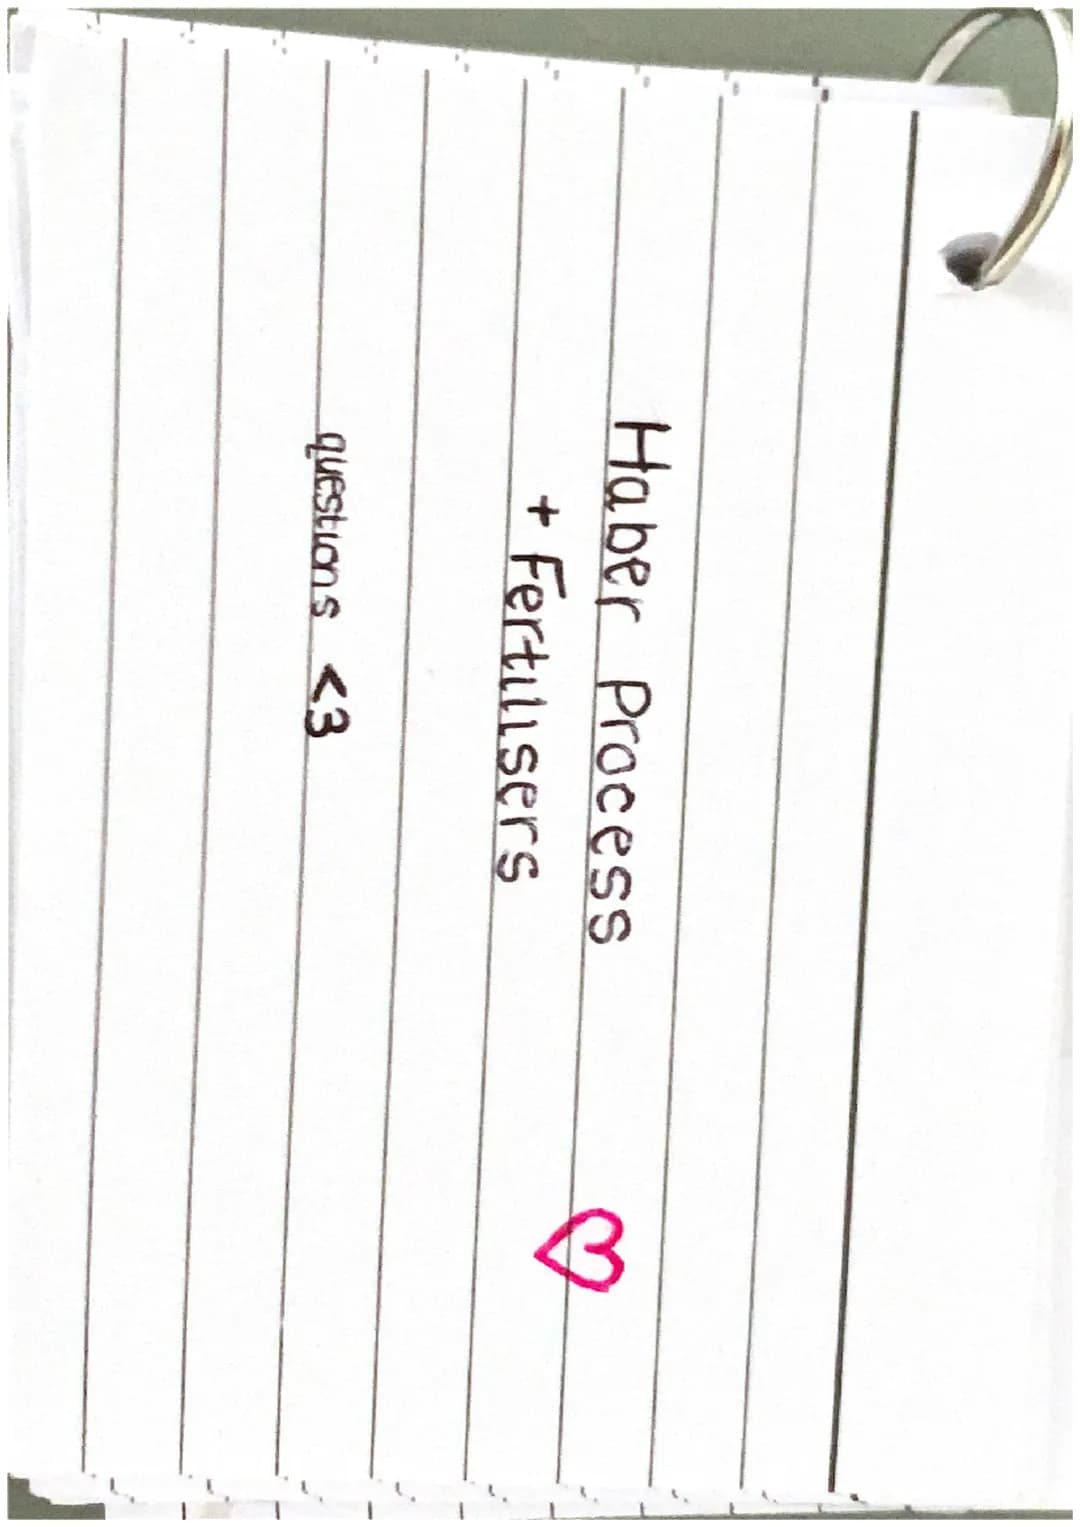 Haber Process
+ Fertilisers
questions <3